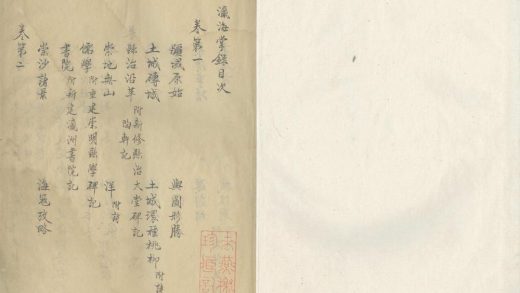 瀛海掌錄目次
卷第一
疆域原始 輿圖形勝
土城磚城 土城環種桃柳附詩
縣治沿革附新修縣治大堂碑記
陶軒記
崇地無山 洋附詩
儒學附重建崇明縣學碑記
書院附新建瀛洲書院記
崇沙諸景 海寇攷略
卷第二